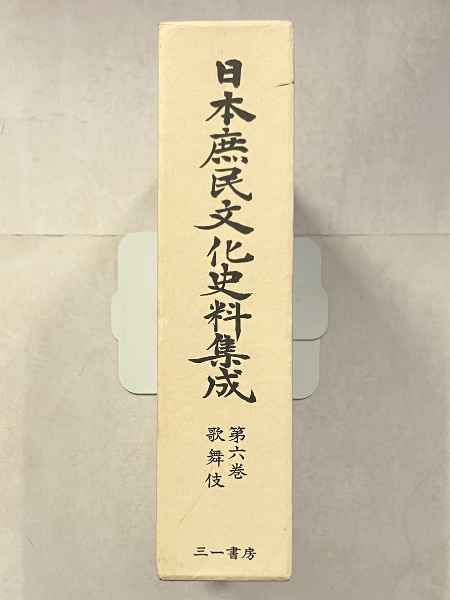 日本庶民文化史料集成
第六巻
歌舞伎
三一書房